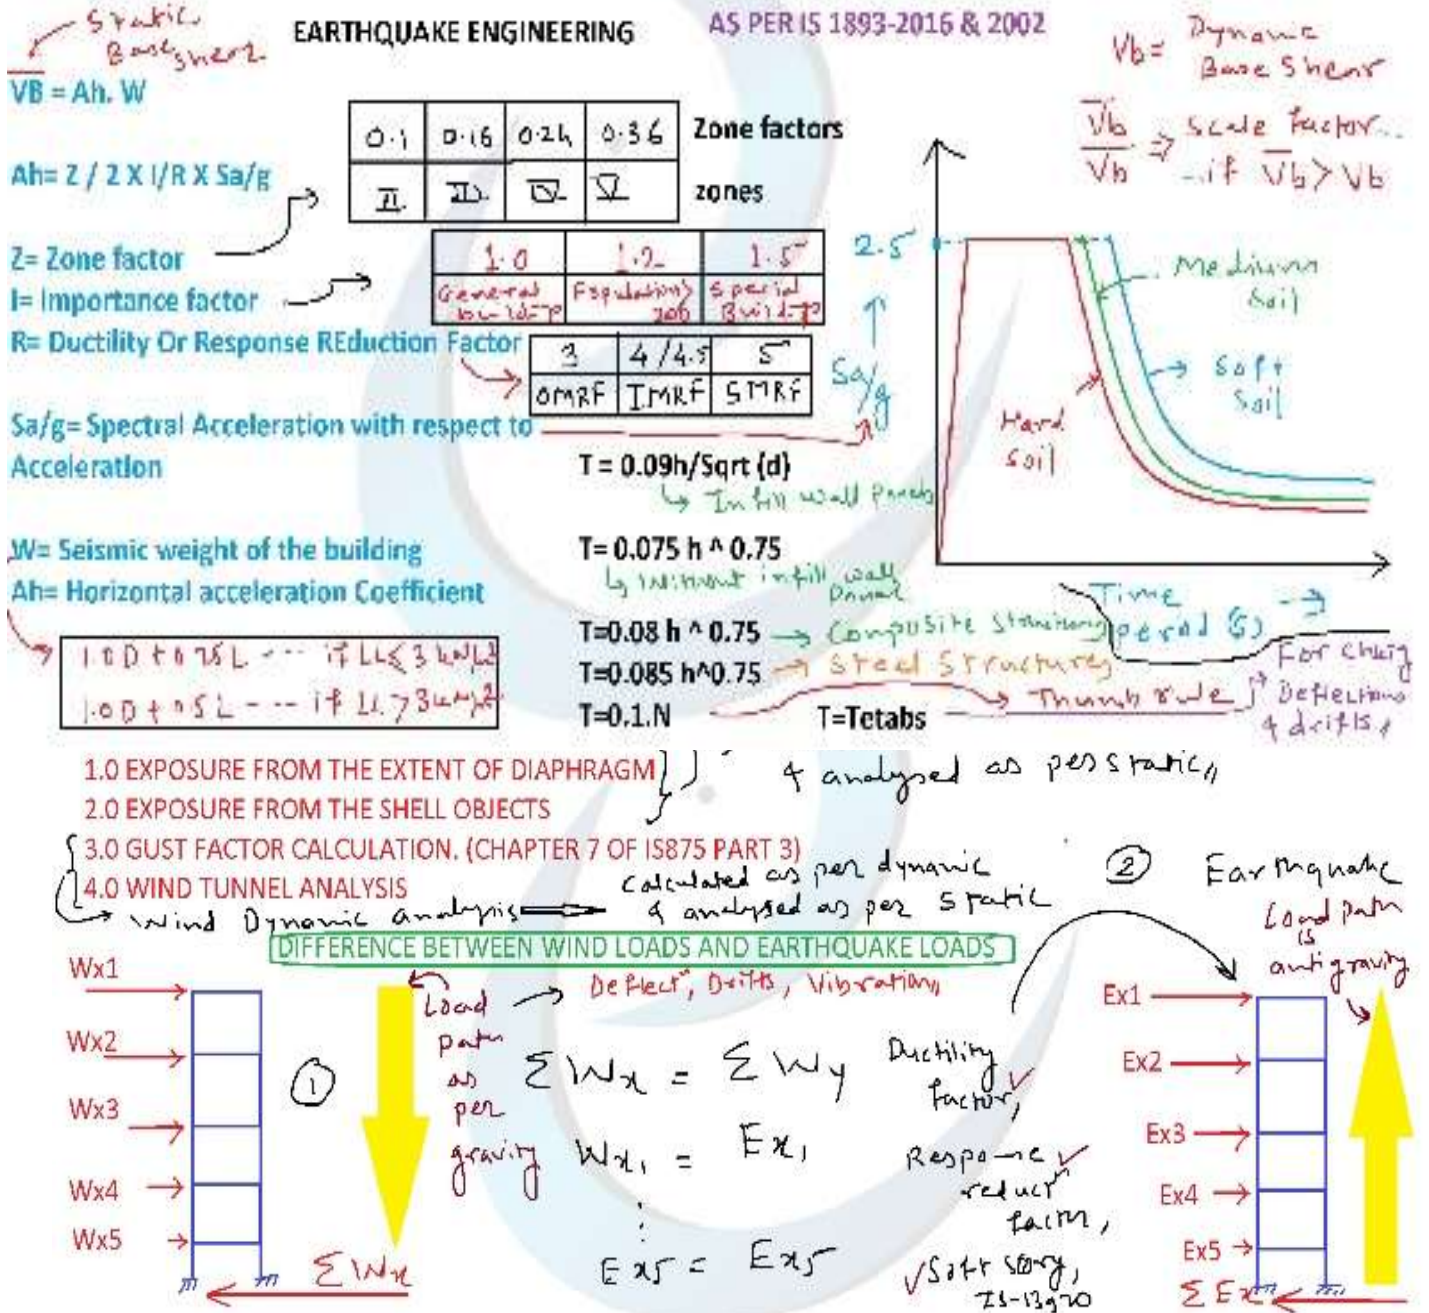 Static
Base shear
EARTHQUAKE ENGINEERING
AS PER IS 1893-2016 & 2002
Vb = Dynamic
Base Shear
VB = Ah. W
V̅b / Vb ⇒ Scale factor..
..if V̅b > Vb
0.1 0.16 0.24 0.36 Zone factors
II III IV V zones
Ah= Z / 2 X I/R X Sa/g
Z= Zone factor
I= Importance factor
1.0 1.2 1.5
General Population> Special
build-g 200 Build-g
R= Ductility Or Response REduction Factor
3 4/4.5 5
OMRF IMRF SMRF
Sa/g= Spectral Acceleration with respect to
Acceleration
2.5
Sa/g
Medium
Soil
Soft
Soil
Hard
Soil
T = 0.09h/Sqrt (d)
Infill wall Panels
W= Seismic weight of the building
Ah= Horizontal acceleration Coefficient
T= 0.075 h ^ 0.75
Without infill wall
Panel
Time
period (s)
T=0.08 h ^ 0.75 → Composite
T=0.085 h^0.75 → Steel Structures
T=0.1.N
T=Tetabs
Thumb rule
For
Deflections
& drifts
1.0D + 0.25L --- if LL ≤ 3 kN/m²
1.0D + 0.5L --- if LL > 3 kN/m²
1.0 EXPOSURE FROM THE EXTENT OF DIAPHRAGM
& analysed as per static
2.0 EXPOSURE FROM THE SHELL OBJECTS
3.0 GUST FACTOR CALCULATION. (CHAPTER 7 OF IS875 PART 3)
4.0 WIND TUNNEL ANALYSIS
Wind Dynamic analysis ⇒ Calculated as per dynamic
& analysed as per static
DIFFERENCE BETWEEN WIND LOADS AND EARTHQUAKE LOADS
Deflectⁿ, Drifts, Vibration
1
Wx1
Wx2
Wx3
Wx4
Wx5
ΣWx
Load
path
as
per
gravity
ΣWx = ΣWy
Wx1 = Ex1
⋮
Ex5 = Ex5
Ductility
factor,
Response
reductⁿ
factor,
Soft story,
IS-13920
2 Earthquake
Load path
is
antigravity
Ex1
Ex2
Ex3
Ex4
Ex5
ΣEx